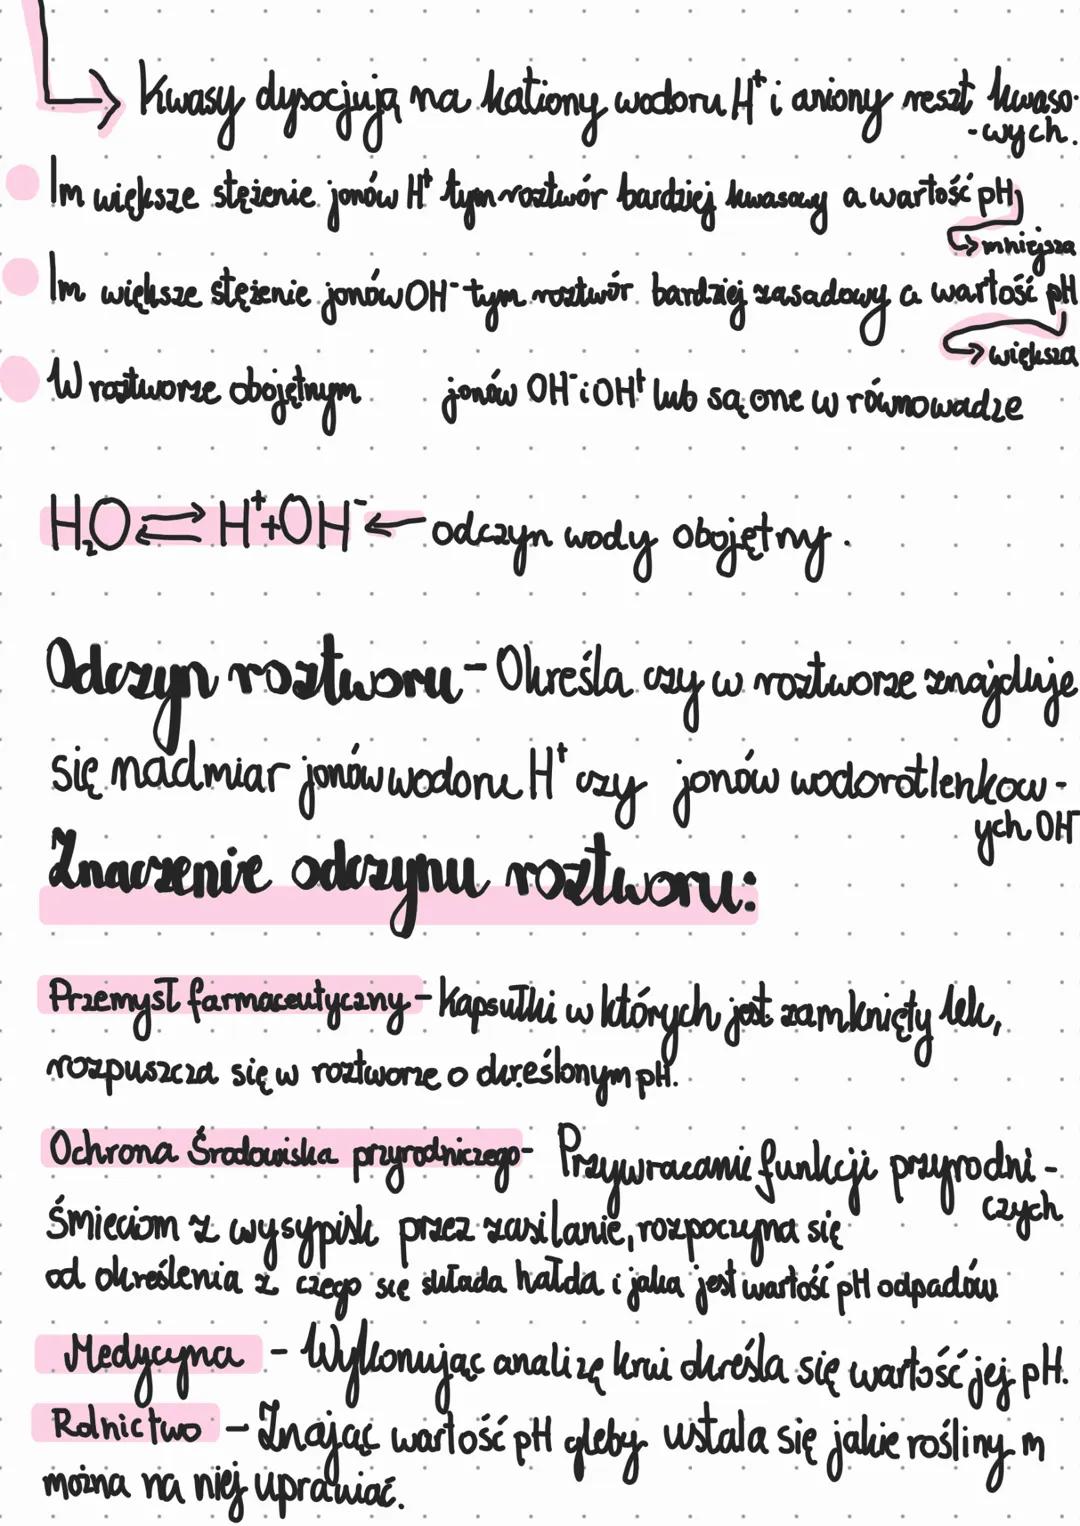 Kwasy dysocjują na kationy wodoru H⁺ i aniony reszt kwaso-
-wych.
Im większe stężenie jonów H⁺ tym roztwór bardziej kwasowy a wartość pH
↳ mniejsza
Im większe stężenie jonów OH⁻ tym roztwór bardziej zasadowy a wartość pH
↳ większa
W roztworze obojętnym jonów OH⁻ i OH⁺ lub są one w równowadze
H₂O ⇄ H⁺+OH⁻ ← odczyn wody obojętny.
Odczyn roztworu - Określa czy w roztworze znajduje
się nadmiar jonów wodoru H⁺ czy jonów wodorotlenkow-
ych OH⁻
Znaczenie odczynu roztworu:
Przemysł farmaceutyczny - Kapsułki w których jest zamknięty lek,
rozpuszcza się w roztworze o określonym pH.
Ochrona Środowiska przyrodniczego - Przywracanie funkcji przyrodni-
czych
śmieciom z wysypisk przez zasilanie, rozpoczyna się
od określenia z czego się składa hałda i jaka jest wartość pH odpadów
Medycyna - Wykonując analizę krwi określa się wartość jej pH.
Rolnictwo - Znając wartość pH gleby ustala się jakie rośliny m
można na niej uprawiać.